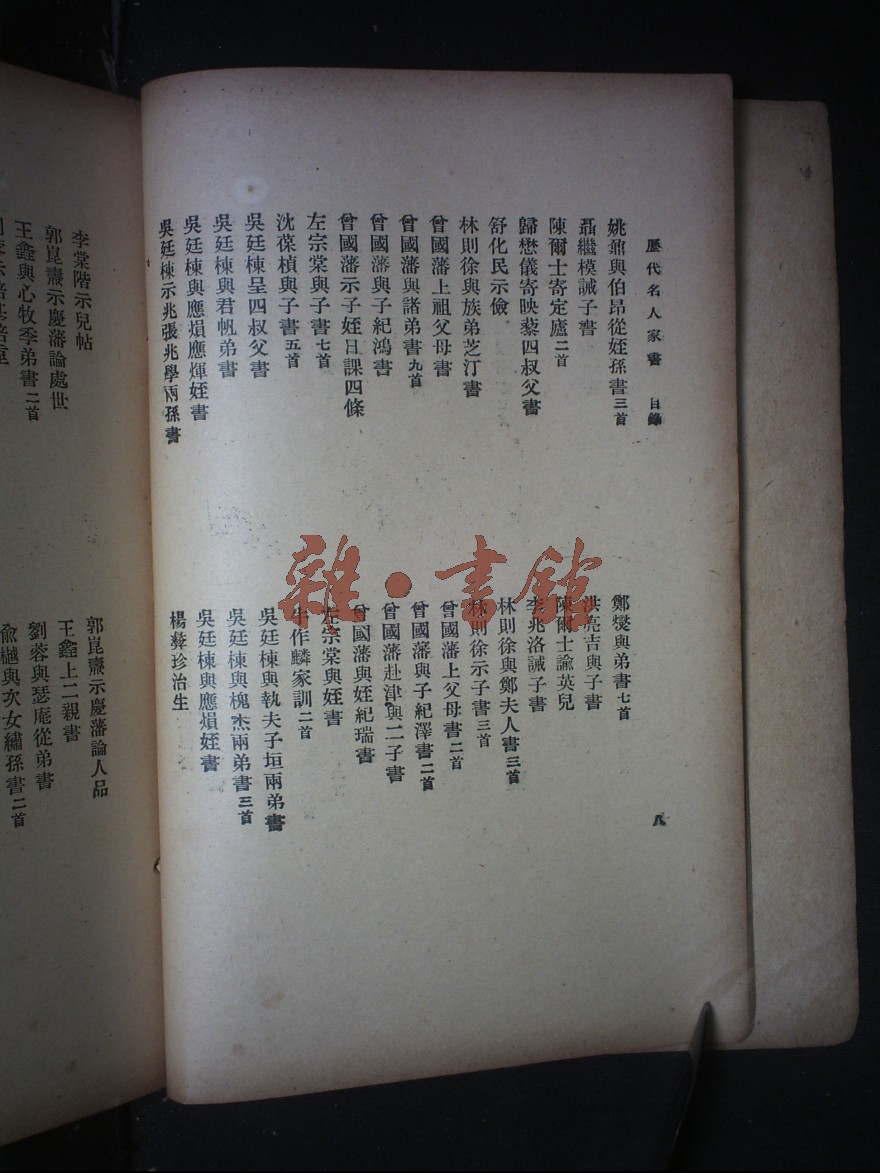 歷代名人家書 目錄 八
姚鼐與伯昂從姪孫書三首
鄭燮與弟書七首
聶繼模誡子書
洪亮吉與子書
陳爾士寄定廬二首
陳爾士諭英兒
歸懋儀寄映藜四叔父書
李兆洛誡子書
舒化民示儉
林則徐與鄭夫人書三首
林則徐與族弟芝汀書
林則徐示子書三首
曾國藩上祖父母書
曾國藩上父母書二首
曾國藩與諸弟書九首
曾國藩與子紀澤書二首
曾國藩與子紀鴻書
曾國藩赴津與二子書
曾國藩示子姪日課四條
曾國藩與姪紀瑞書
左宗棠與子書七首
左宗棠與姪書
沈葆楨與子書五首
牛作麟家訓二首
吳廷棟呈四叔父書
吳廷棟與執夫子垣兩弟書
吳廷棟與君帆弟書
吳廷棟與槐杰兩弟書三首
吳廷棟與應熉應煇姪書
吳廷棟與應熉姪書
吳廷棟示兆張兆學兩孫書
楊彝珍治生
李棠階示兒帖
郭崑燾示慶藩論人品
郭崑燾示慶藩論處世
王鑫上二親書
王鑫與心牧季弟書二首
劉蓉與瑟庵從弟書
俞樾與次女繡孫書二首
雜·書館